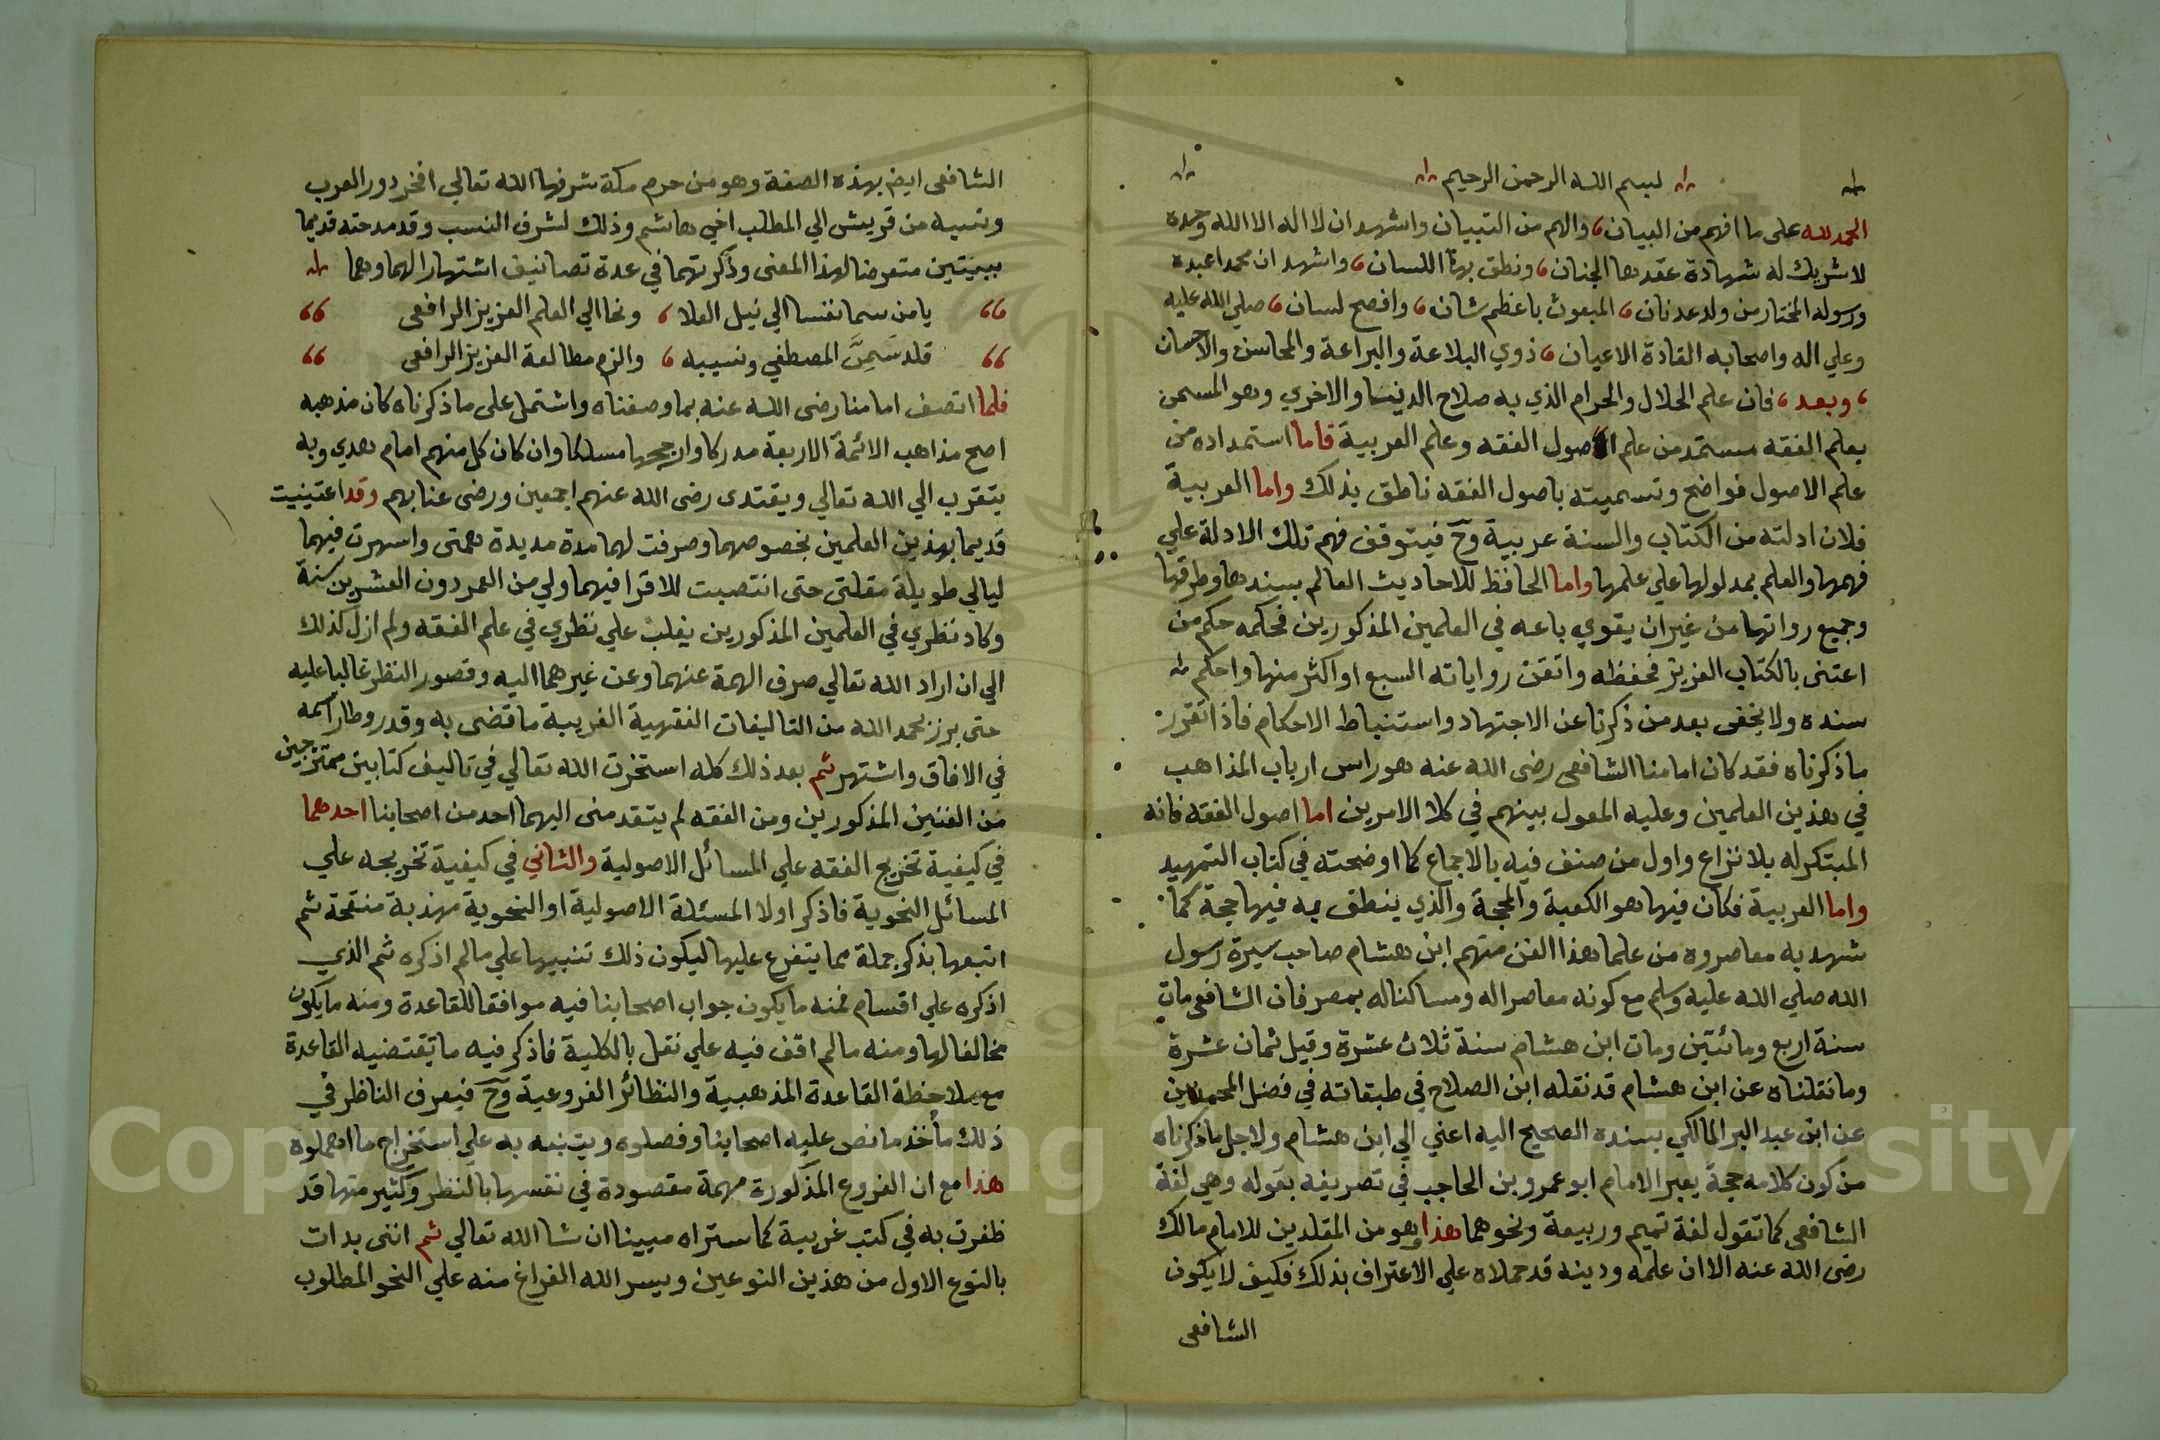 لبسم الله الرحمن الرحيم
الحمد لله على ما افهم من البيان، والهم من التبيان واشهد ان لا اله الا الله وحده
لا شريك له شهادة عقدها الجنان، ونطق بهآ اللسان، واشهد ان محمدا عبده
ورسوله المختار من ولد عدنان، المبعوث باعظم شان، وافصح لسان، صلي الله عليه
وعلي اله واصحابه القادة الاعيان، ذوي البلاعة والبراعة والمحاسن والاحسان
، وبعد، فان علم الحلال والحرام الذي به صلاح الدنيا والاخري وهو المسمى
بعلم الفقه مستمد من علم اصول الفقه وعلم العربية فاما استمداده من
علم الاصول فواضح وتسميته باصول الفقه ناطق بذلك واما العربية
فلان ادلته من الكتاب والسنة عربية وح فيتوقف فهم تلك الادلة علي
فهمها والعلم بمدلولها علي علمها واما الحافظ للاحاديث العالم بسندها وطرقها
وجميع رواتها من غير ان يقوي باعه في العلمين المذكورين فحكمه حكم من
اعتنى بالكتاب العزيز فحفظه واتقن رواياته السبع او اكثر منها واحكم
سنده ولا يخفى بعد من ذكرنا عن الاجتهاد واستنباط الاحكام فاذا تقرر
ما ذكرناه فقد كان امامنا الشافعى رضى الله عنه هو راس ارباب المذاهب
في هذين العلمين وعليه المعول بينهم في كلا الامرين اما اصول الفقه فانه
المبتكر له بلا نزاع واول من صنف فيه بالاجماع كما اوضحته في كتاب التمهيد
واما العربية فكان فيها هو الكعبة والمحجة والذي ينطق به فيها حجة كما
شهد به معاصروه من علما هذا الفن منهم ابن هشام صاحب سيرة رسول
الله صلي الله عليه وسلم مع كونه معاصرا له ومساكنا له بمصر فان الشافعى مات
سنة اربع ومائتين ومات ابن هشام سنة ثلاث عشرة وقيل ثمان عشرة
وما نقلناه عن ابن هشام قد نقله ابن الصلاح في طبقاته في فضل المحمدين
عن ابن عبد البر المالكي بسنده الصحيح اليه اعني الي ابن هشام ولاجل ما ذكرناه
من كون كلامه حجة يعبر الامام ابو عمرو بن الحاجب في تصريفه بقوله وهي لغة
الشافعى كما تقول لغة تميم وربيعة ونحوهما هذا وهو من المقلدين للامام مالك
رضى الله عنه الا ان علمه ودينه قد حملاه علي الاعتراف بذلك فكيف لا يكون
الشافعى
الشافعى ايض بهذه الصفة وهو من حرم مكة شرفها الله تعالي افخر دور العرب
ونسبه من قريش الي المطلب اخي هاشم وذلك لشرف النسب وقد مدحته قديما
ببيتين متعرضا لهذا المعنى وذكرتهما في عدة تصانيف اشتهارا لهما وهما
يا من سما نفسا الي نيل العلا، ونحا الي العلم الغزيز الرافعى
قلد سَمِىَّ المصطفي ونسيبه، والزم مطالعة العزيز الرافعى
فلما اتصف امامنا رضى الله عنه بما وصفناه واشتمل على ما ذكرناه كان مذهبه
اصح مذاهب الائمة الاربعة مدركا وارجحها مسلكا وان كان كل منهم امام هدي وبه
يتقرب الي الله تعالي ويقتدى رضى الله عنهم اجمعين ورضى عنا بهم وقد اعتنيت
قديما بهذين العلمين بخصوصهما وصرفت لهما مدة مديدة همتى واسهرت فيهما
ليالي طويلة مقلتى حتى انتصبت للاقرا فيهما ولي من العمر دون العشرين سنة
وكاد نظري في العلمين المذكورين يغلب علي نظري في علم الفقه ولم ازل كذلك
الي ان اراد الله تعالي صرف الهمة عنهما وعن غيرهما اليه وقصور النظر غالبا عليه
حتى برز بحمد الله من التاليفات الفقهية الغريبة ما قضى به وقدر وطار اسمه
في الافاق واشتهر ثم بعد ذلك كله استخرت الله تعالي في تاليف كتابين ممتزجين
من الفنين المذكورين ومن الفقه لم يتقدمنى اليهما احد من اصحابنا احدهما
في كيفية تخريج الفقه علي المسائل الاصولية والثاني في كيفية تخريجه علي
المسائل النحوية فاذكر اولا المسئلة الاصولية او النحوية مهذبة منقحة ثم
اتبعها بذكر جملة مما يتفرع عليها ليكون ذلك تنبيها علي ما لم اذكره ثم الذي
اذكره علي اقسام فمنه ما يكون جواب اصحابنا فيه موافقا للقاعدة ومنه ما يكون
مخالفا لها ومنه ما لم اقف فيه علي نقل بالكلية فاذكر فيه ما تقتضيه القاعدة
مع ملاحظة القاعدة المذهبية والنظائر الفروعية وح فيعرف الناظر في
ذلك مأخذ ما نص عليه اصحابنا وفصلوه ويتنبه به علي استخراج ما اهملوه
هذا مع ان الفروع المذكورة مهمة مقصودة في نفسها بالنظر وكثير منها قد
ظفرت به في كتب غريبة كما ستراه مبينا ان شا الله تعالي ثم اننى بدات
بالنوع الاول من هذين النوعين ويسر الله الفراغ منه علي النحو المطلوب
Copyright © King Saud University